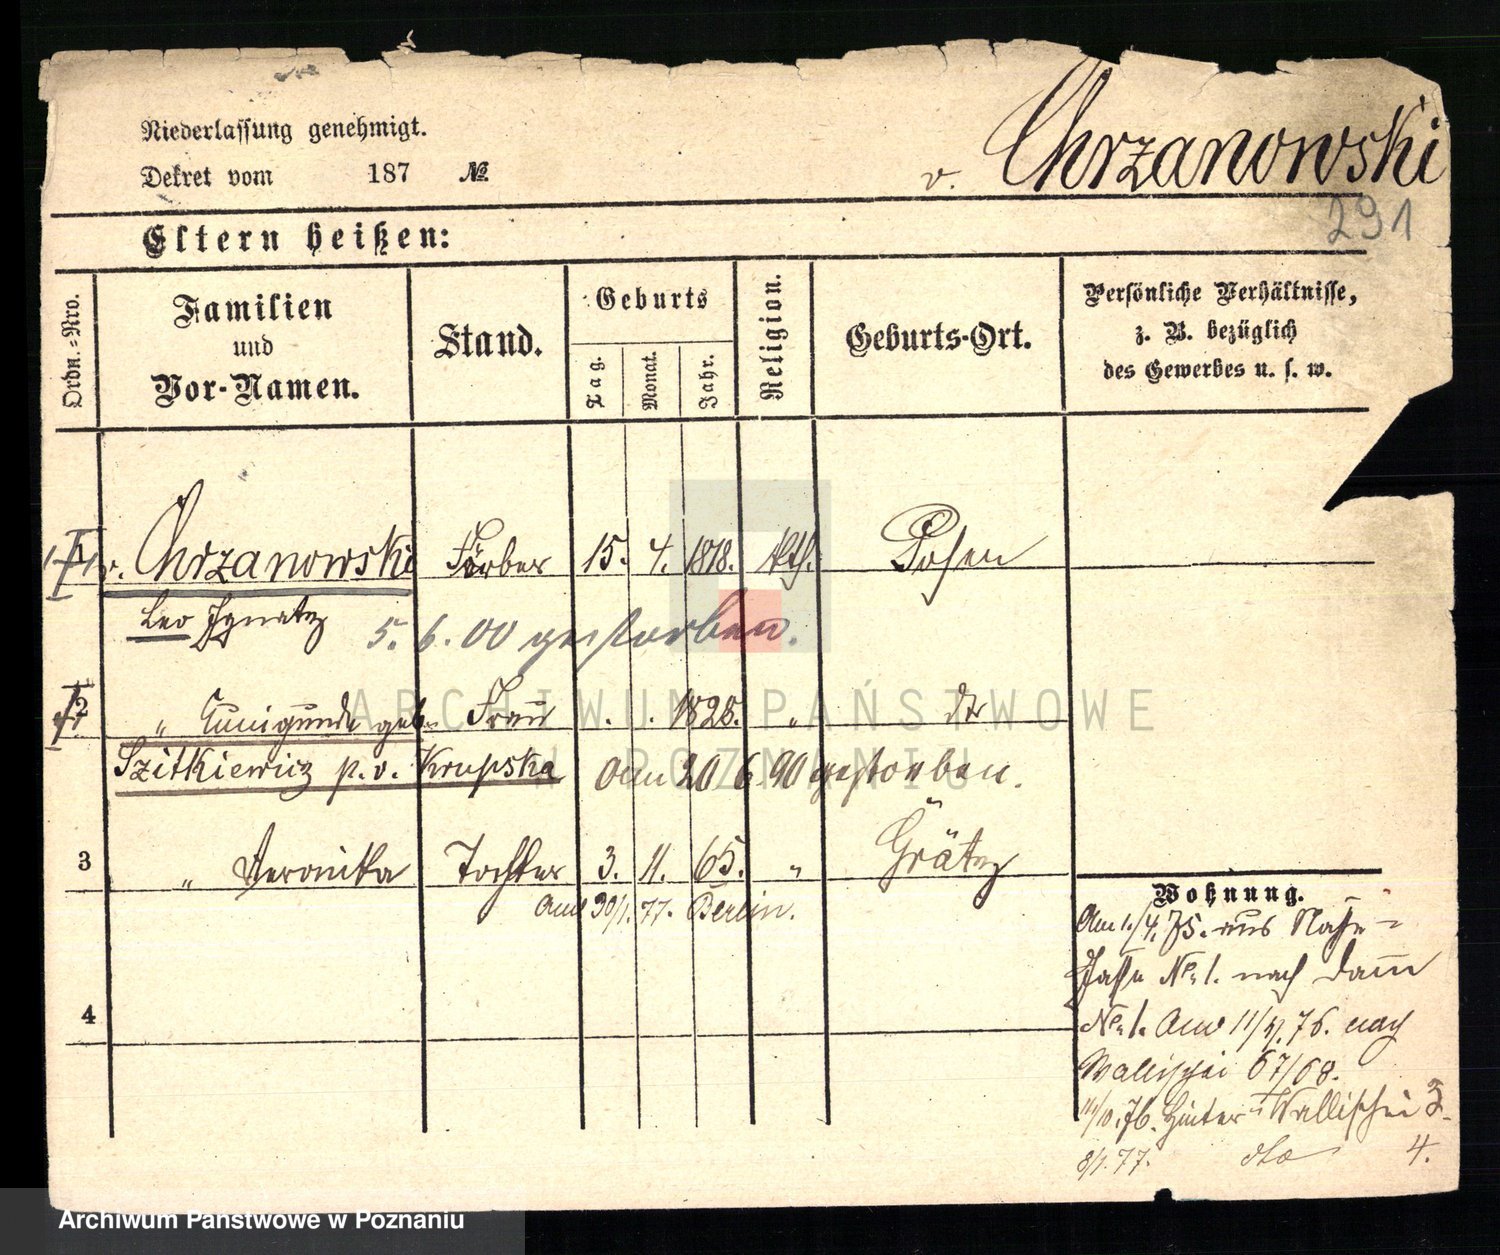 Niederlassung genehmigt.
Dekret vom 187 №
v. Chrzanowski
291
Eltern heißen:
Ordn.-Nro.
Familien
und
Vor-Namen.
Stand.
Geburts
Tag.
Monat.
Jahr.
Religion.
Geburts-Ort.
Persönliche Verhältnisse,
z. B. bezüglich
des Gewerbes u. s. w.
1 v. Chrzanowski Färber 15. 4. 1818. kth. Posen
Leo Ignatz
5. 6. 00 gestorben.
2 " Cunigunde geb. Frau . . 1828. " dto
Szitkiewicz p. v. Krupska am 20 6. 90 gestorben.
3 " Veronika Tochter 3. 11. 65. " Grätz
30/1. 77. Berlin.
4
Wohnung.
Am 1./4. 75. aus
Gasse No. 1. nach Damm
No. 1. 76. nach
Wallischei 67/68.
11/10. 76. Hinter Wallischei 3.
8/1. 77. dto 4.
ARCHIWUM PAŃSTWOWE
W POZNANIU
Archiwum Państwowe w Poznaniu